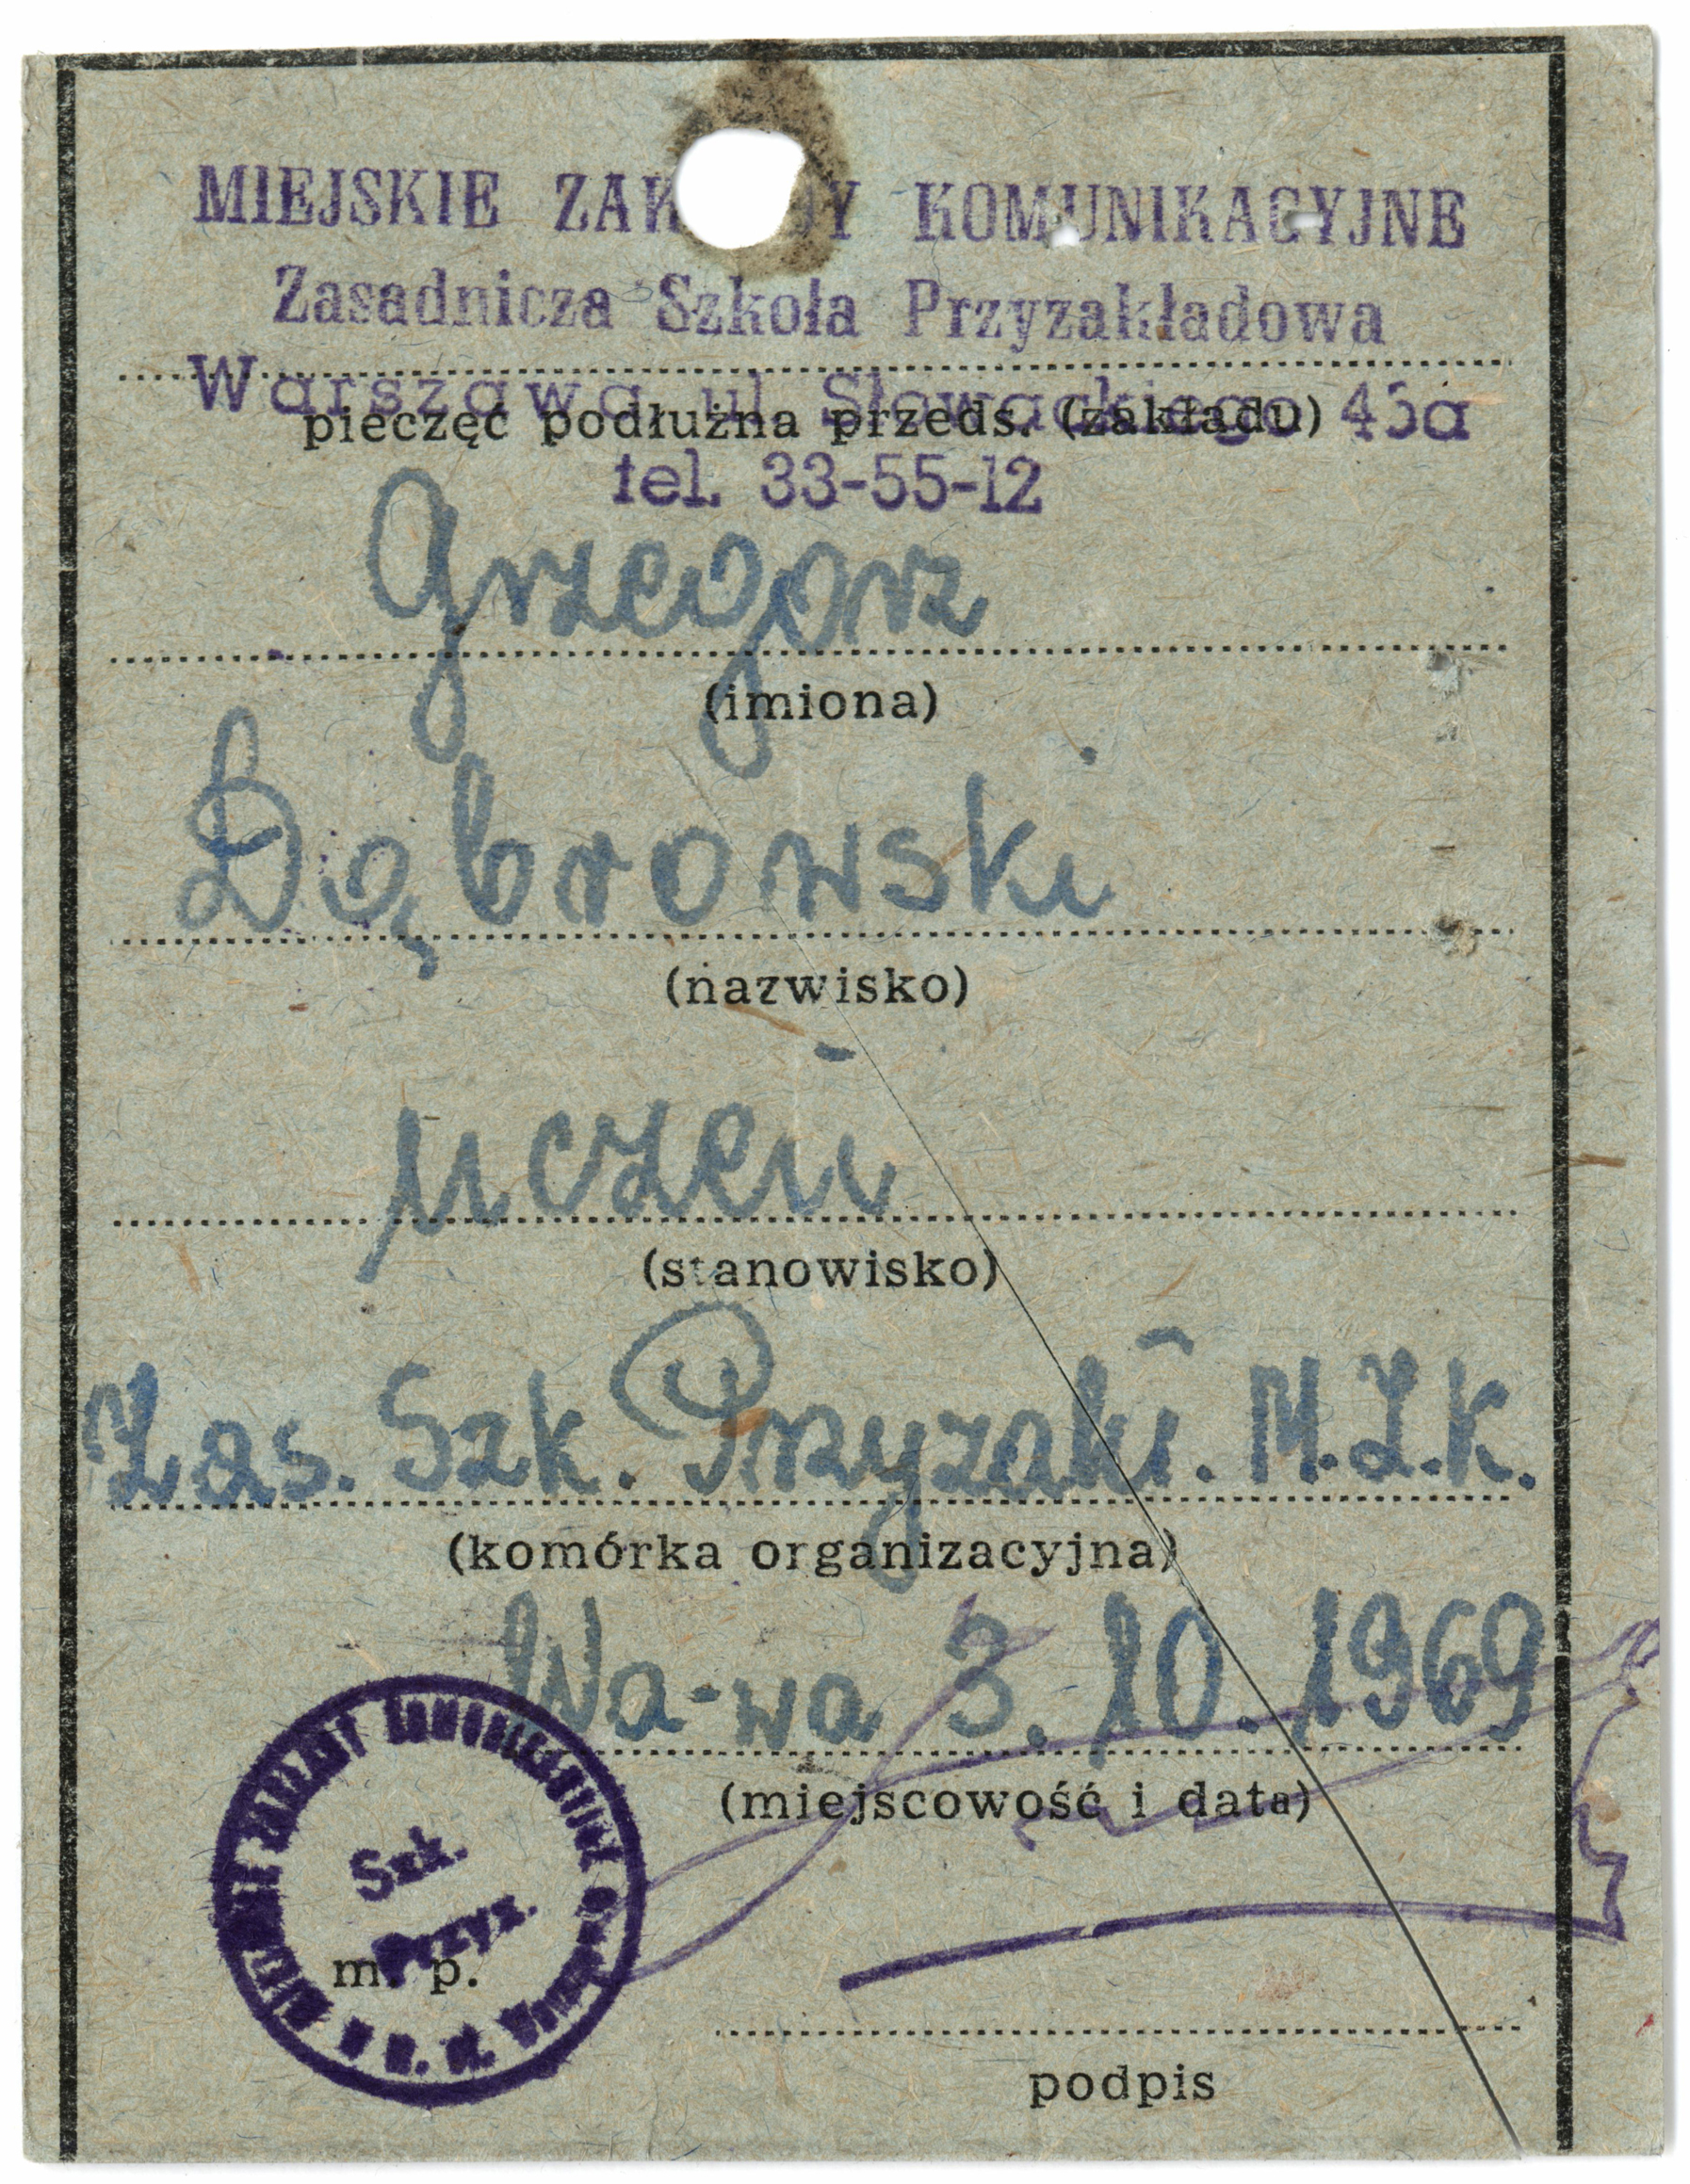 MIEJSKIE ZAKŁADY KOMUNIKACYJNE
Zasadnicza Szkoła Przyzakładowa
Warszawa ul Słowackiego 45a
pieczęć podłużna przeds. (zakładu)
tel. 33-55-12
Grzegorz
(imiona)
Dąbrowski
(nazwisko)
uczeń
(stanowisko)
Zas. Szk. Przyzakł. M.Z.K.
(komórka organizacyjna)
Wa-wa 3.10.1969
(miejscowość i data)
Szk.
Przyz.
m. p.
podpis